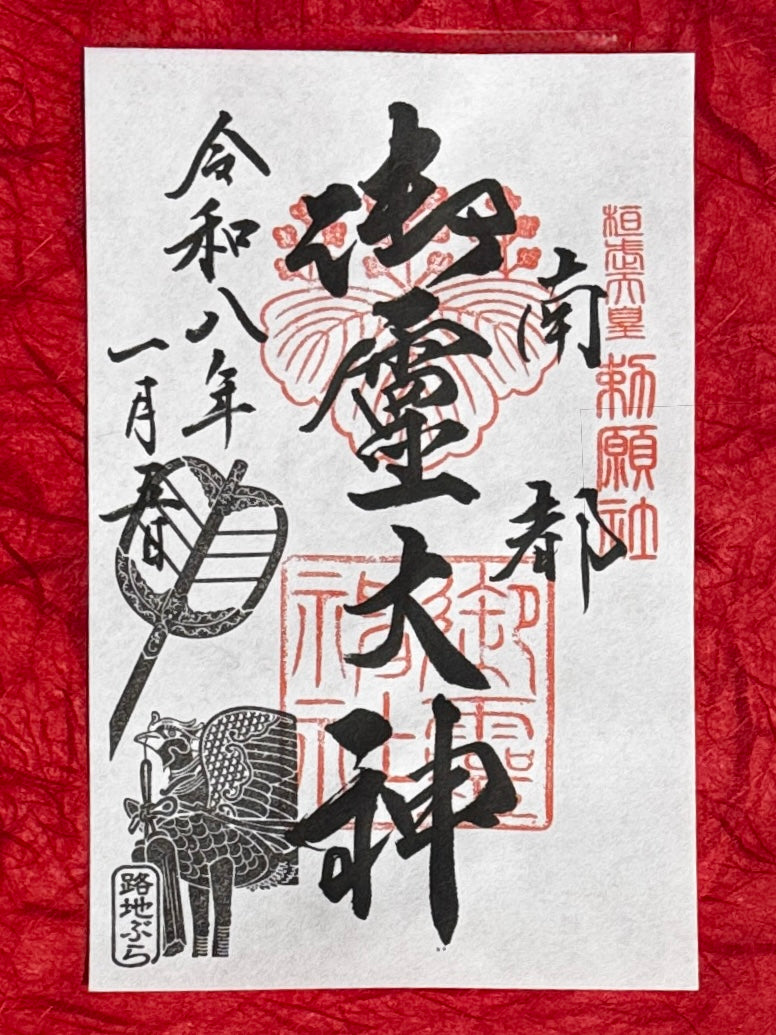 桓武天皇
勅願社
南都
御霊大神
御靈
神社
令和八年
一月五日
路地ぶら